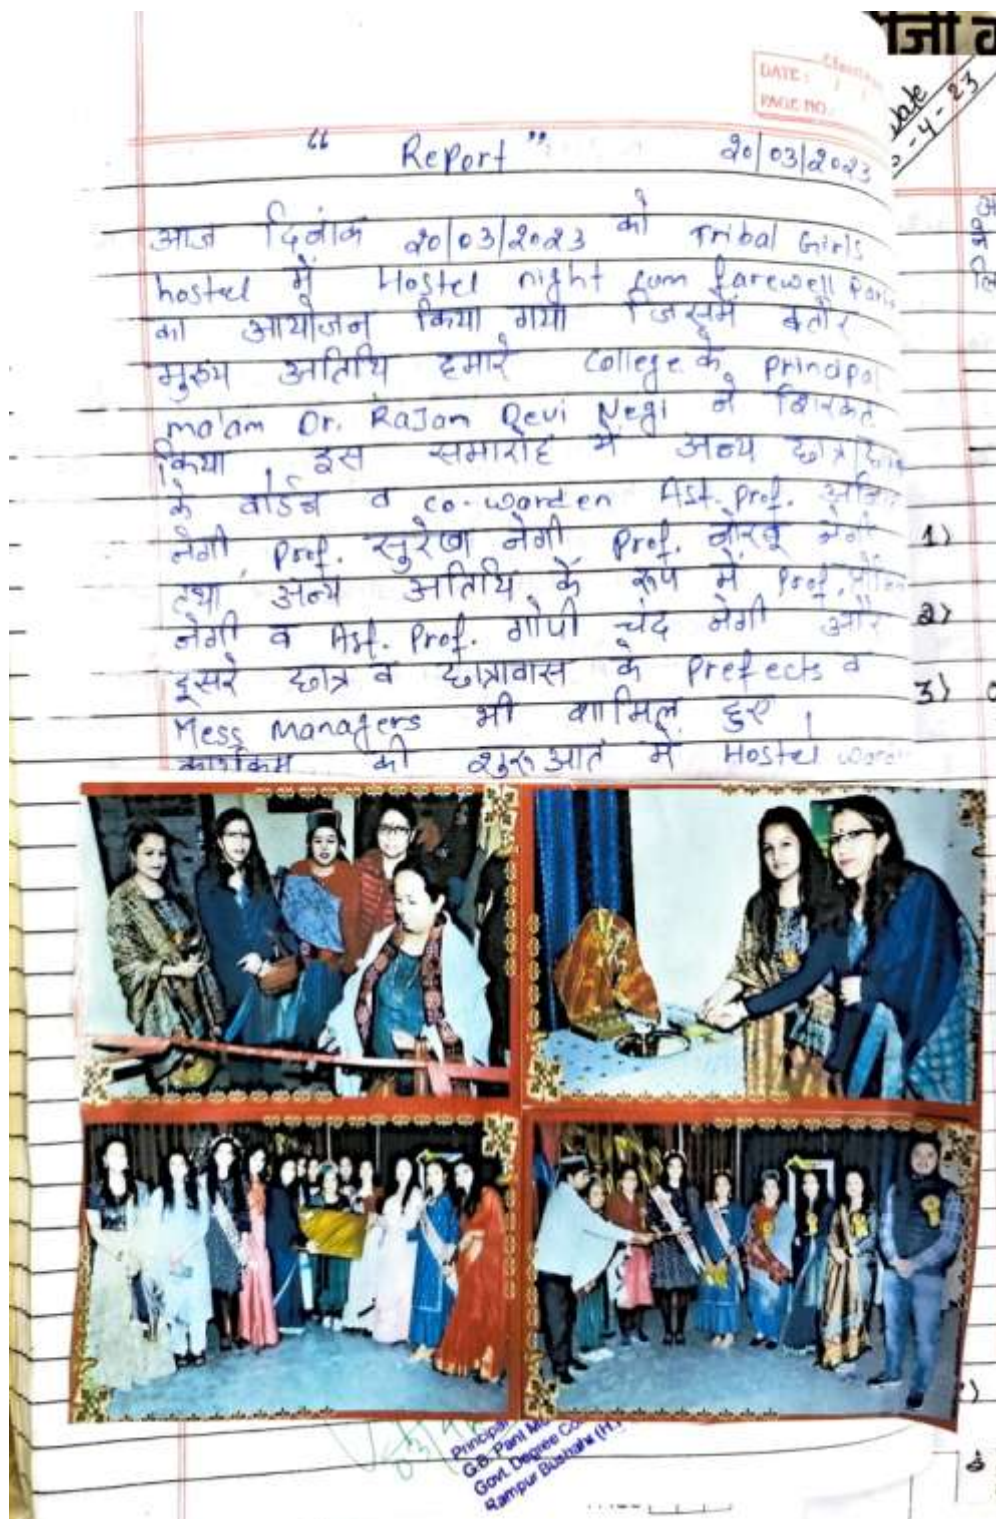 " Report "
20/03/2023
DATE:
PAGE NO.:
आज दिनांक 20/03/2023 को Tribal Girls
hostel में Hostel night cum farewell
का आयोजन किया गया जिसमें बतौर
मुख्य अतिथि हमारे College के Principal
ma'am Dr. RaJan Devi Negi ने शिरकत
किया इस समारोह में अन्य
के वार्डन व co-warden Ast. Prof.
नेगी, Prof. सुरेखा नेगी, Prof. नोरबू नेगी
तथा अन्य अतिथि के रूप में Prof.
नेगी व Ast. Prof. गोपी चंद नेगी और
दूसरे छात्र व छात्रावास के Prefects व
Mess Managers भी शामिल हुए।
कार्यक्रम की शुरुआत में Hostel
Date
-4-23
1)
2)
3)
Principal
G.B. Pant
Govt. Degree
Rampur Bushahr (H.